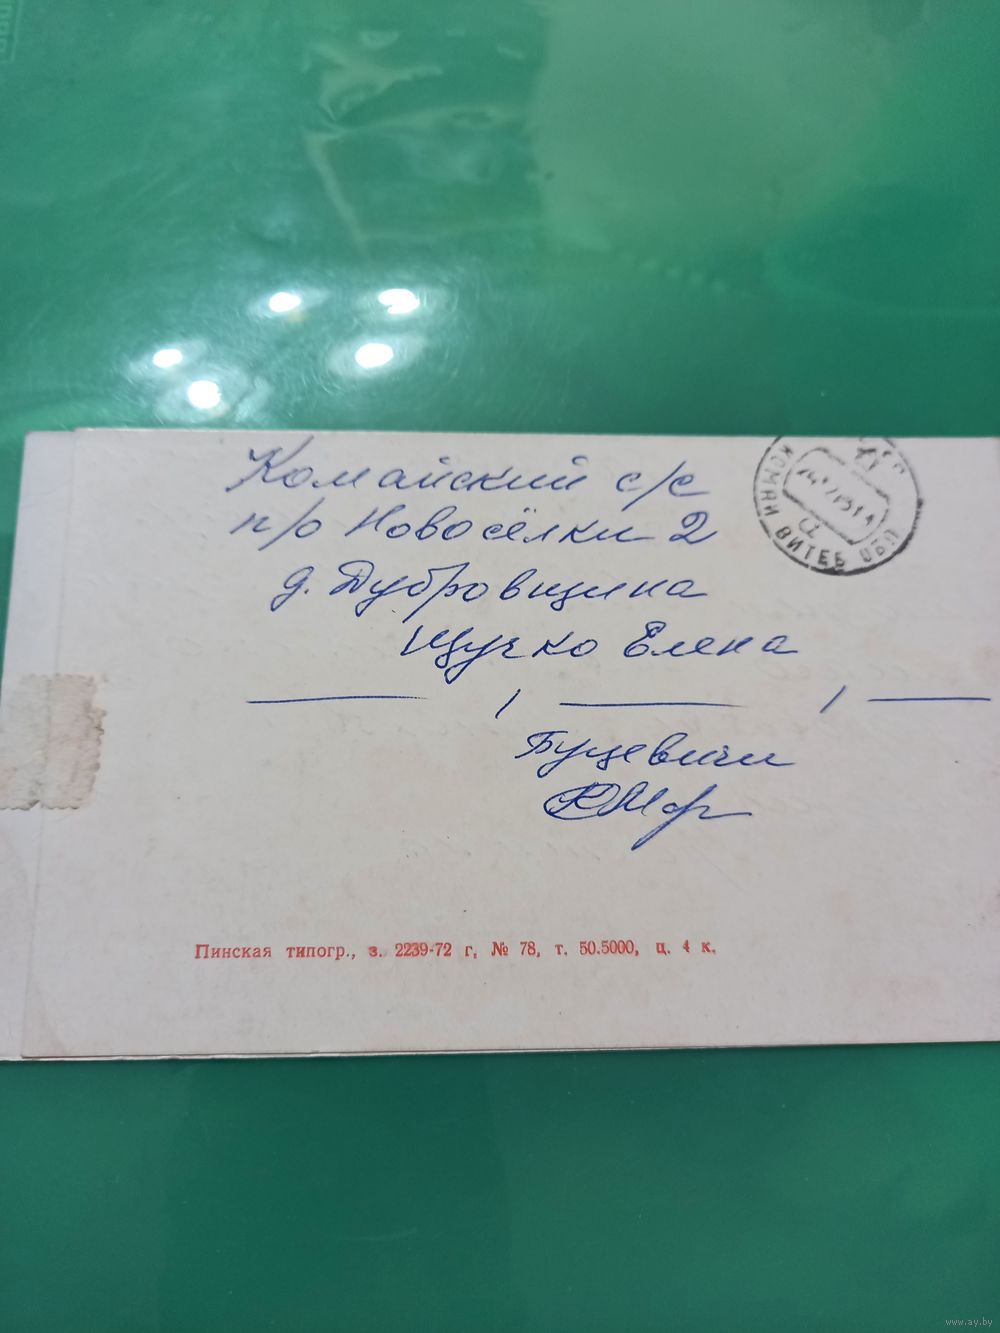 Комайский с/с
п/о Новосёлки 2
д. Дубровщина
Щучко Елена
Буцевичи
КОМАИ ВИТЕБ ОБЛ
Пинская типогр., з. 2239-72 г, № 78, т. 50.5000, ц. 4 к.
www.ay.by